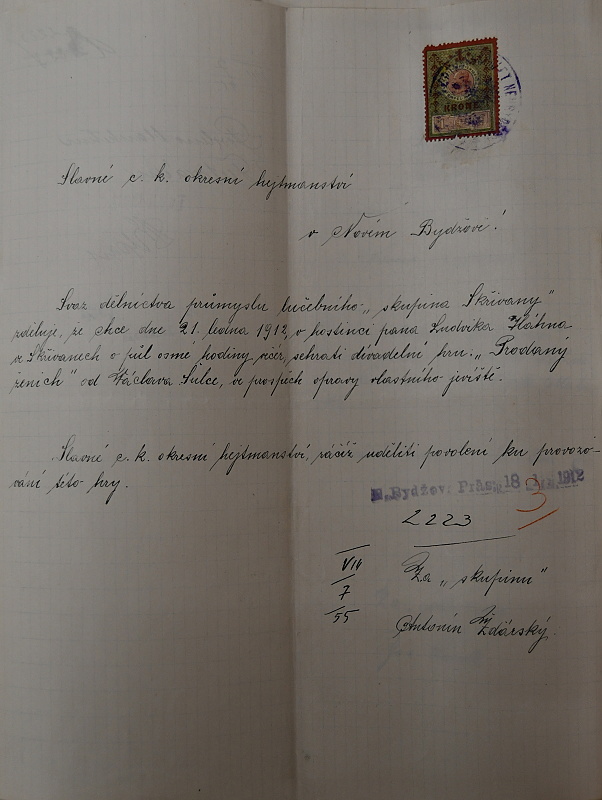 KRONE
Slavné c. k. okresní hejtmanství
v Novém Bydžově!
Svaz dělnictva průmyslu lučebního „skupina Skřivany"
zděluje, že chce dne 21. ledna 1912, v hostinci pana Ludvíka Hláhna
ve Skřivanech o půl osmé hodiny večer, sehrati divadelní hru: „Prodaný
ženich" od Václava Šulce, ve prospěch opravy vlastního jeviště.
Slavné c. k. okresní hejtmanství, ráčíž uděliti povolení ku provozo-
vání této hry.
N. Bydžov: Präs. 18 1. 1912
2223 3
VII
7
55
Za „skupinu"
Antonín Žďárský.